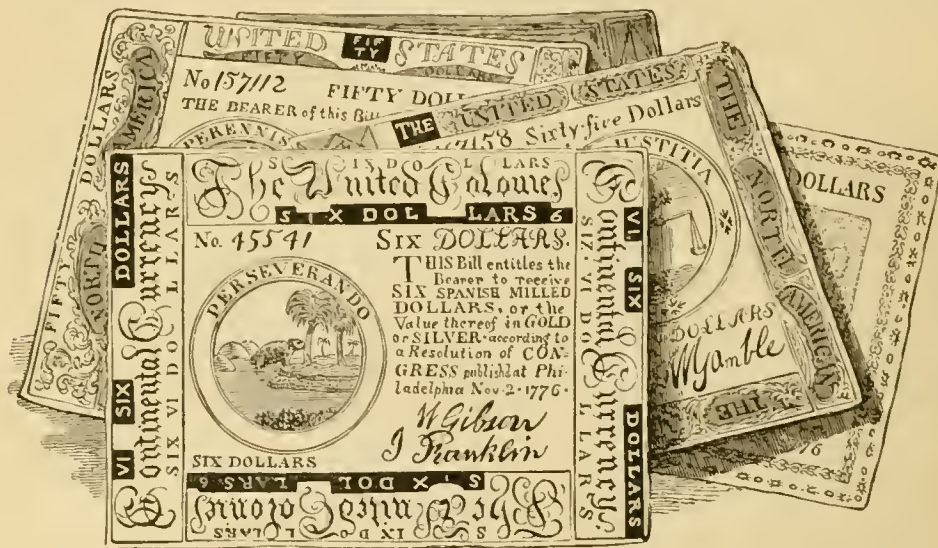 UNITED FIF TY STATES
FIFTY DOLLARS
No 157112
FIFTY DOLL
THE BEARER of this Bill
PERENNIS
FIFTY DOLLARS
NORTH AMERICA
THE UNITED STATES
7158 Sixty-five Dollars
JUSTITIA
THE NORTH AMERICAN
DOLLARS
WGamble
THE
DOLLARS
76
SIX DOLLARS
The United Colonies
SIX DOLLARS 6
No. 45541 SIX DOLLARS.
THIS Bill entitles the
Bearer to receive
SIX SPANISH MILLED
DOLLARS, or the
Value thereof in GOLD
or SILVER according to
a Resolution of CON-
GRESS published at Phi-
ladelphia Nov. 2. 1776.
PERSEVERANDO
W Gibson
J Franklin
SIX DOLLARS
VI SIX DOLLARS
Continental Currency
SIX VI DOLLARS
Continental Currency
SIX VI DOLLARS
VI SIX DOLLARS
SIX DOLLARS 6
The United Colonies
SIX DOLLARS